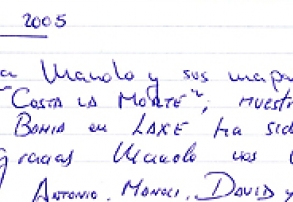 2005
a Manolo y sus
"COSTA LA MORTE",
BAHIA en LAXE ha
gracias Manolo nos
ANTONIO, MANOLI, DAVID y